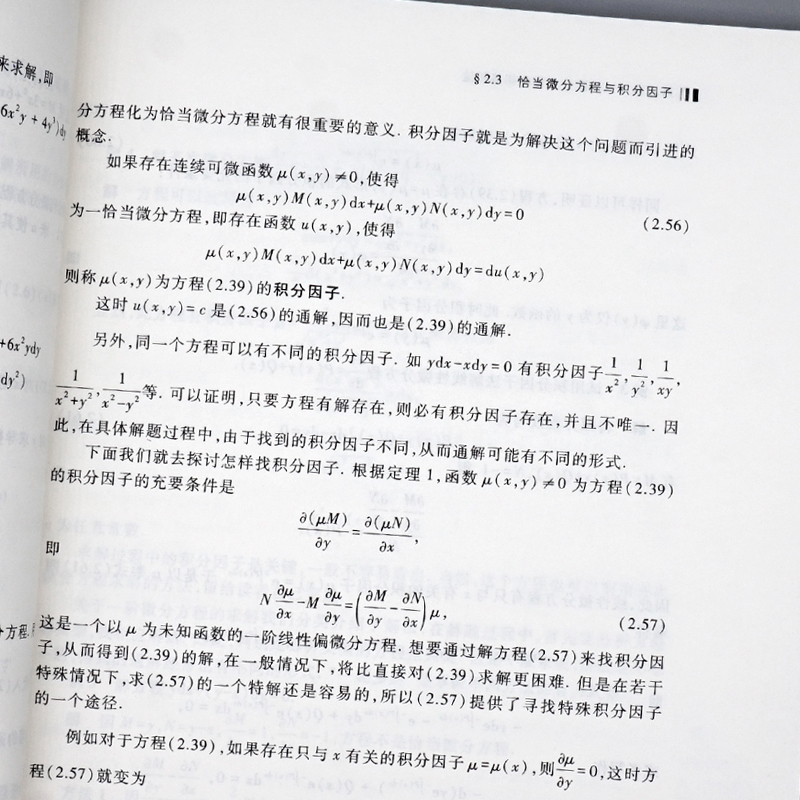 §2.3 恰当微分方程与积分因子
分方程化为恰当微分方程就有很重要的意义. 积分因子就是为解决这个问题而引进的
概念.
如果存在连续可微函数 μ(x,y)≠0,使得
μ(x,y)M(x,y)dx+μ(x,y)N(x,y)dy=0 (2.56)
为一恰当微分方程,即存在函数 u(x,y),使得
μ(x,y)M(x,y)dx+μ(x,y)N(x,y)dy=du(x,y)
则称 μ(x,y)为方程(2.39)的积分因子.
这时 u(x,y)=c 是(2.56)的通解,因而也是(2.39)的通解.
另外,同一个方程可以有不同的积分因子. 如 ydx-xdy=0 有积分因子 1/x², 1/y², 1/xy,
1/(x²+y²), 1/(x²-y²)等. 可以证明,只要方程有解存在,则必有积分因子存在,并且不唯一. 因
此,在具体解题过程中,由于找到的积分因子不同,从而通解可能有不同的形式.
下面我们就去探讨怎样找积分因子. 根据定理 1,函数 μ(x,y)≠0 为方程(2.39)
的积分因子的充要条件是
∂(μM)/∂y=∂(μN)/∂x,
即
N ∂μ/∂x-M ∂μ/∂y=(∂M/∂y-∂N/∂x)μ, (2.57)
这是一个以 μ 为未知函数的一阶线性偏微分方程. 想要通过解方程(2.57)来找积分因
子,从而得到(2.39)的解,在一般情况下,将比直接对(2.39)求解更困难. 但是在若干
特殊情况下,求(2.57)的一个特解还是容易的,所以(2.57)提供了寻找特殊积分因子
的一个途径.
例如对于方程(2.39),如果存在只与 x 有关的积分因子 μ=μ(x),则∂μ/∂y=0,这时方
程(2.57)就变为
来求解,即
6x²y + 4y³)dy
+6x²ydy
dy²)
分方程.